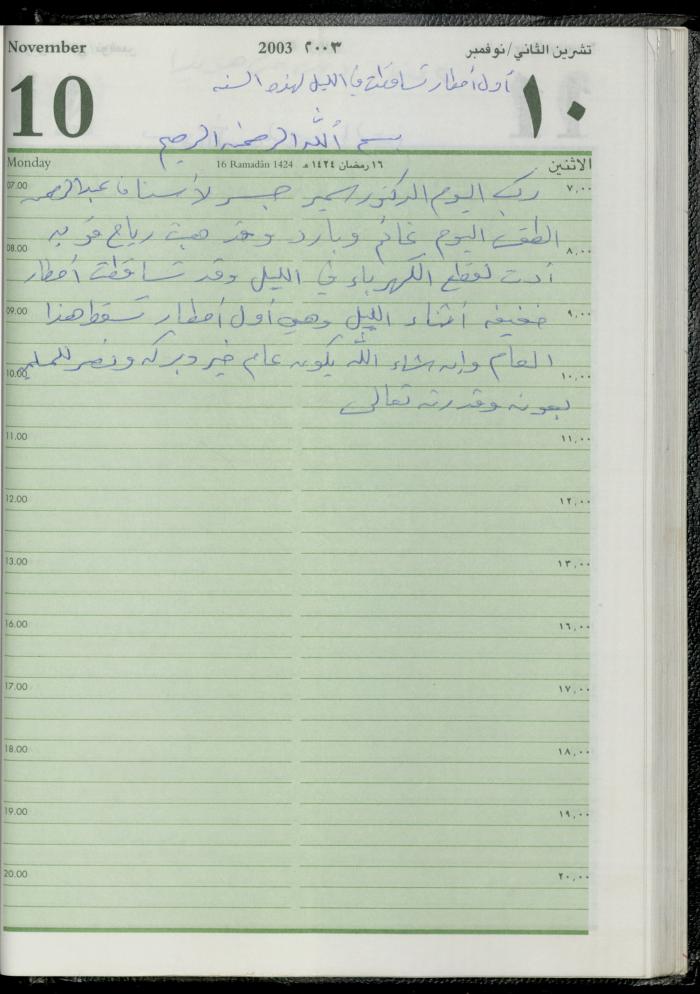 November 2003 ٢٠٠٣ تشرين الثاني/نوفمبر
10 ١٠
أول أمطار تساقطت في الليل لهذه السنه
بسم الله الرحمن الرحيم
Monday 16 Ramadān 1424 ١٦ رمضان ١٤٢٤ هـ الاثنين
07.00 ٧,٠٠
ركب اليوم الدكتور سمير جسر لأسنان عبدالرحمن
الطقس اليوم غائم وبارد وقد هبت رياح قويه
08.00 ٨,٠٠
أدت لقطع الكهرباء في الليل وقد تساقطت أمطار
09.00 ٩,٠٠
خفيفه أثناء الليل وهي أول أمطار تسقط هذا
العام وان شاء الله يكون عام خير وبركه ونصر للمسلمين
10.00 ١٠,٠٠
بعونه وقدرته تعالى
11.00 ١١,٠٠
12.00 ١٢,٠٠
13.00 ١٣,٠٠
16.00 ١٦,٠٠
17.00 ١٧,٠٠
18.00 ١٨,٠٠
19.00 ١٩,٠٠
20.00 ٢٠,٠٠